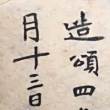 造頌四
月十三日